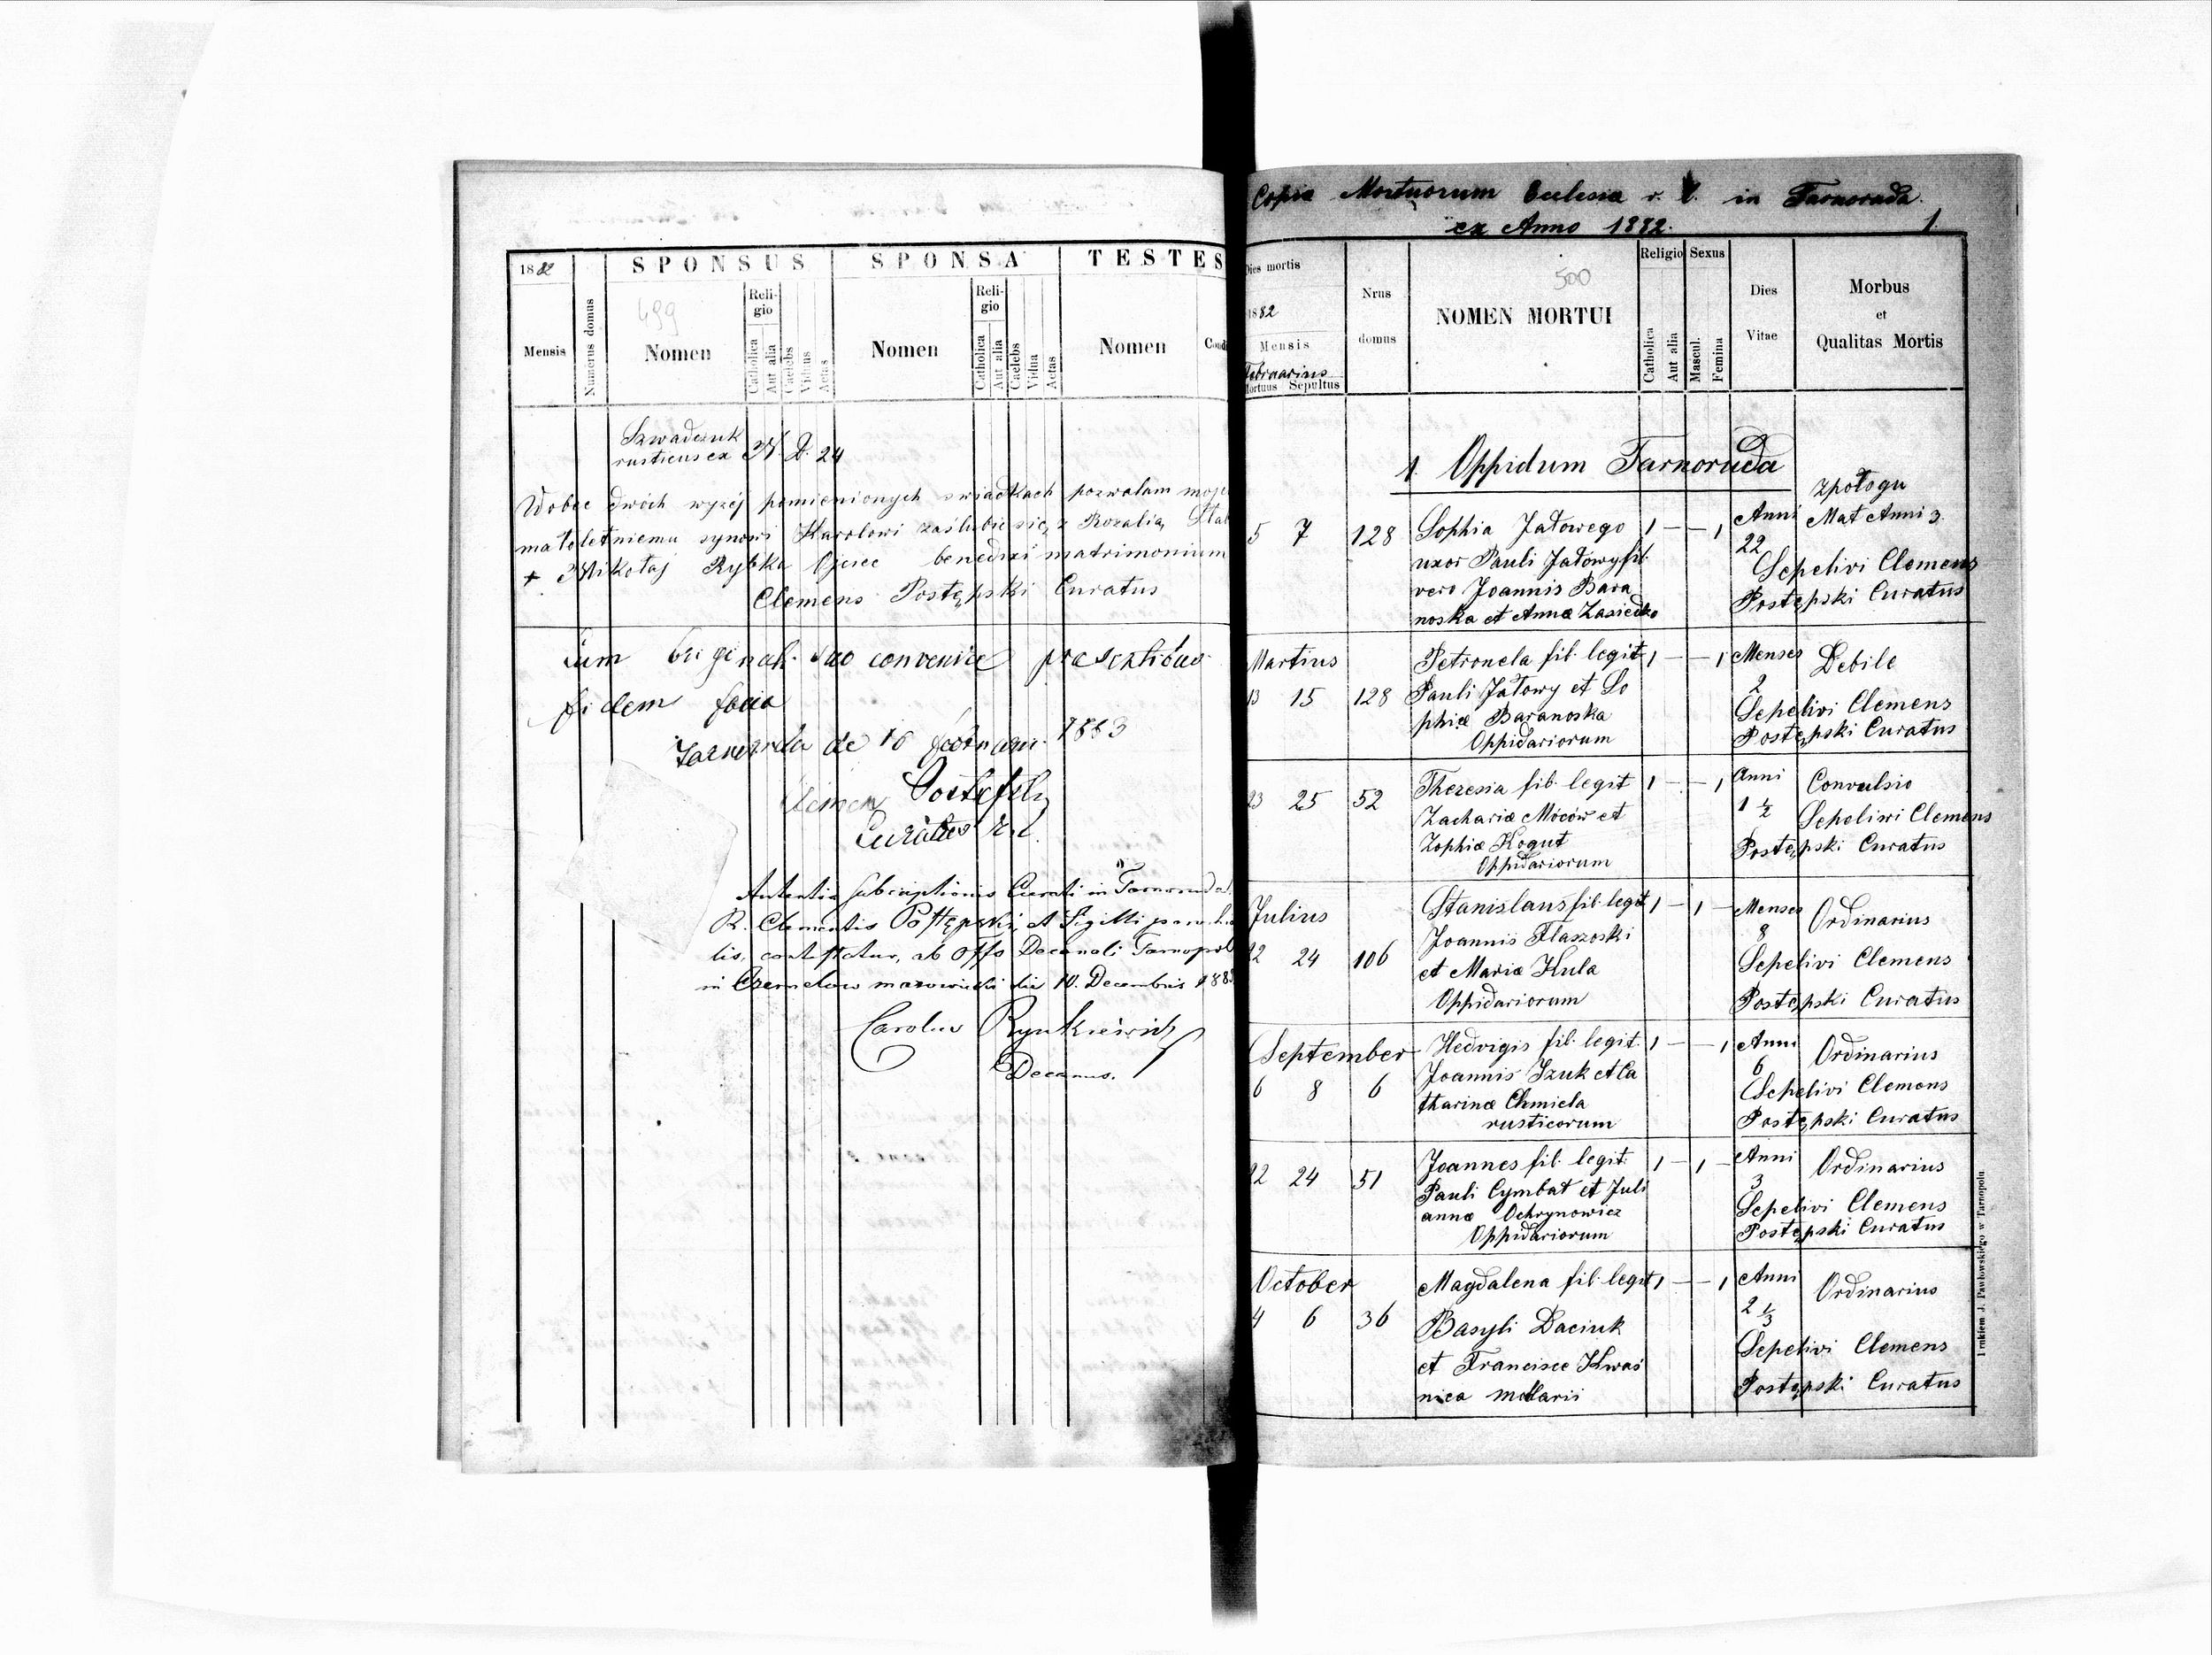 1882
SPONSUS SPONSA TESTES
Mensis
Numerus domus
499
Nomen
Reli-
gio
Catholica
Aut alia
Caelebs
Viduus
Aetas
Nomen
Reli-
gio
Catholica
Aut alia
Caelebs
Vidua
Aetas
Nomen
Szwadczuk
rusticus ex N. D. 24
Wobec dwóch wyzéj pomienionych swiadkach pozwalam moje
maloletniemu synowi Karolowi zaślubić się z Rozalią
+ Mikołaj Rybka Ojciec benedixi matrimonium
Clemens Postępski Curatus
Cum originali suo convenire praesentibus
fidem facio
Tarnoruda de 16 februarii 1883
Clemens Postępski
Curatus r. l.
Autentia subscriptionis Curati in Tarnoruda
R. Clementis Postępski, et Sigilli parochia
lis, contestatur, ab Offo Decanali Tarnopol
in Czernelow mazowiecki die 10. Decembris 188
Carolus Rynkiewicz
Decanus.
Copia Mortuorum Eclesia r. l. in Tarnoruda.
ex Anno 1882. 1.
Dies mortis
1882
Mensis
Februarius
Mortuus Sepultus
Nrus
domus
500
NOMEN MORTUI
Religio
Catholica
Aut alia
Sexus
Mascul.
Femina
Dies
Vitae
Morbus
et
Qualitas Mortis
1. Oppidum Tarnoruda
5 7 128 Sophia Jałowego 1 — — 1 Anni zpołogu
uxor Pauli Jałowy fil. 22 Mat Anni 3.
vero Joannis Bara Sepelivi Clemens
noska et Annæ Zasiedko Postępski Curatus
Martius Petronela fil. legit 1 — — 1 Menses Debile
13 15 128 Pauli Jałowy et So 2
phiæ Baranoska Sepelivi Clemens
Oppidariorum Postępski Curatus
23 25 52 Theresia fil. legit 1 — — 1 Anni Convulsio
Zachariæ Móców et 1 ½ Sepeliwi Clemens
Zophiæ Kogut Postępski Curatus
Oppidariorum
Julius Stanislaus fil. legit 1 — 1 — Menses Ordinarius
22 24 106 Joannis Flaszoski 8
et Mariæ Kula Sepelivi Clemens
Oppidariorum Postępski Curatus
September Hedvigis fil. legit. 1 — — 1 Anni Ordinarius
6 8 6 Joannis Szuk et Ca 6
tharinæ Chmiela Sepelivi Clemens
rusticorum Postępski Curatus
22 24 51 Joannes fil. legit. 1 — 1 — Anni Ordinarius
Pauli Cymbał et Juli 3
annæ Ochrynowicz Sepelivi Clemens
Oppidariorum Postępski Curatus
October Magdalena fil. legit 1 — — 1 Anni Ordinarius
4 6 36 Basyli Daciuk 2 ⅓
et Francisce Kwaś Sepelivi Clemens
nica molarii Postępski Curatus
Drukiem J. Pawłowskiego w Tarnopolu